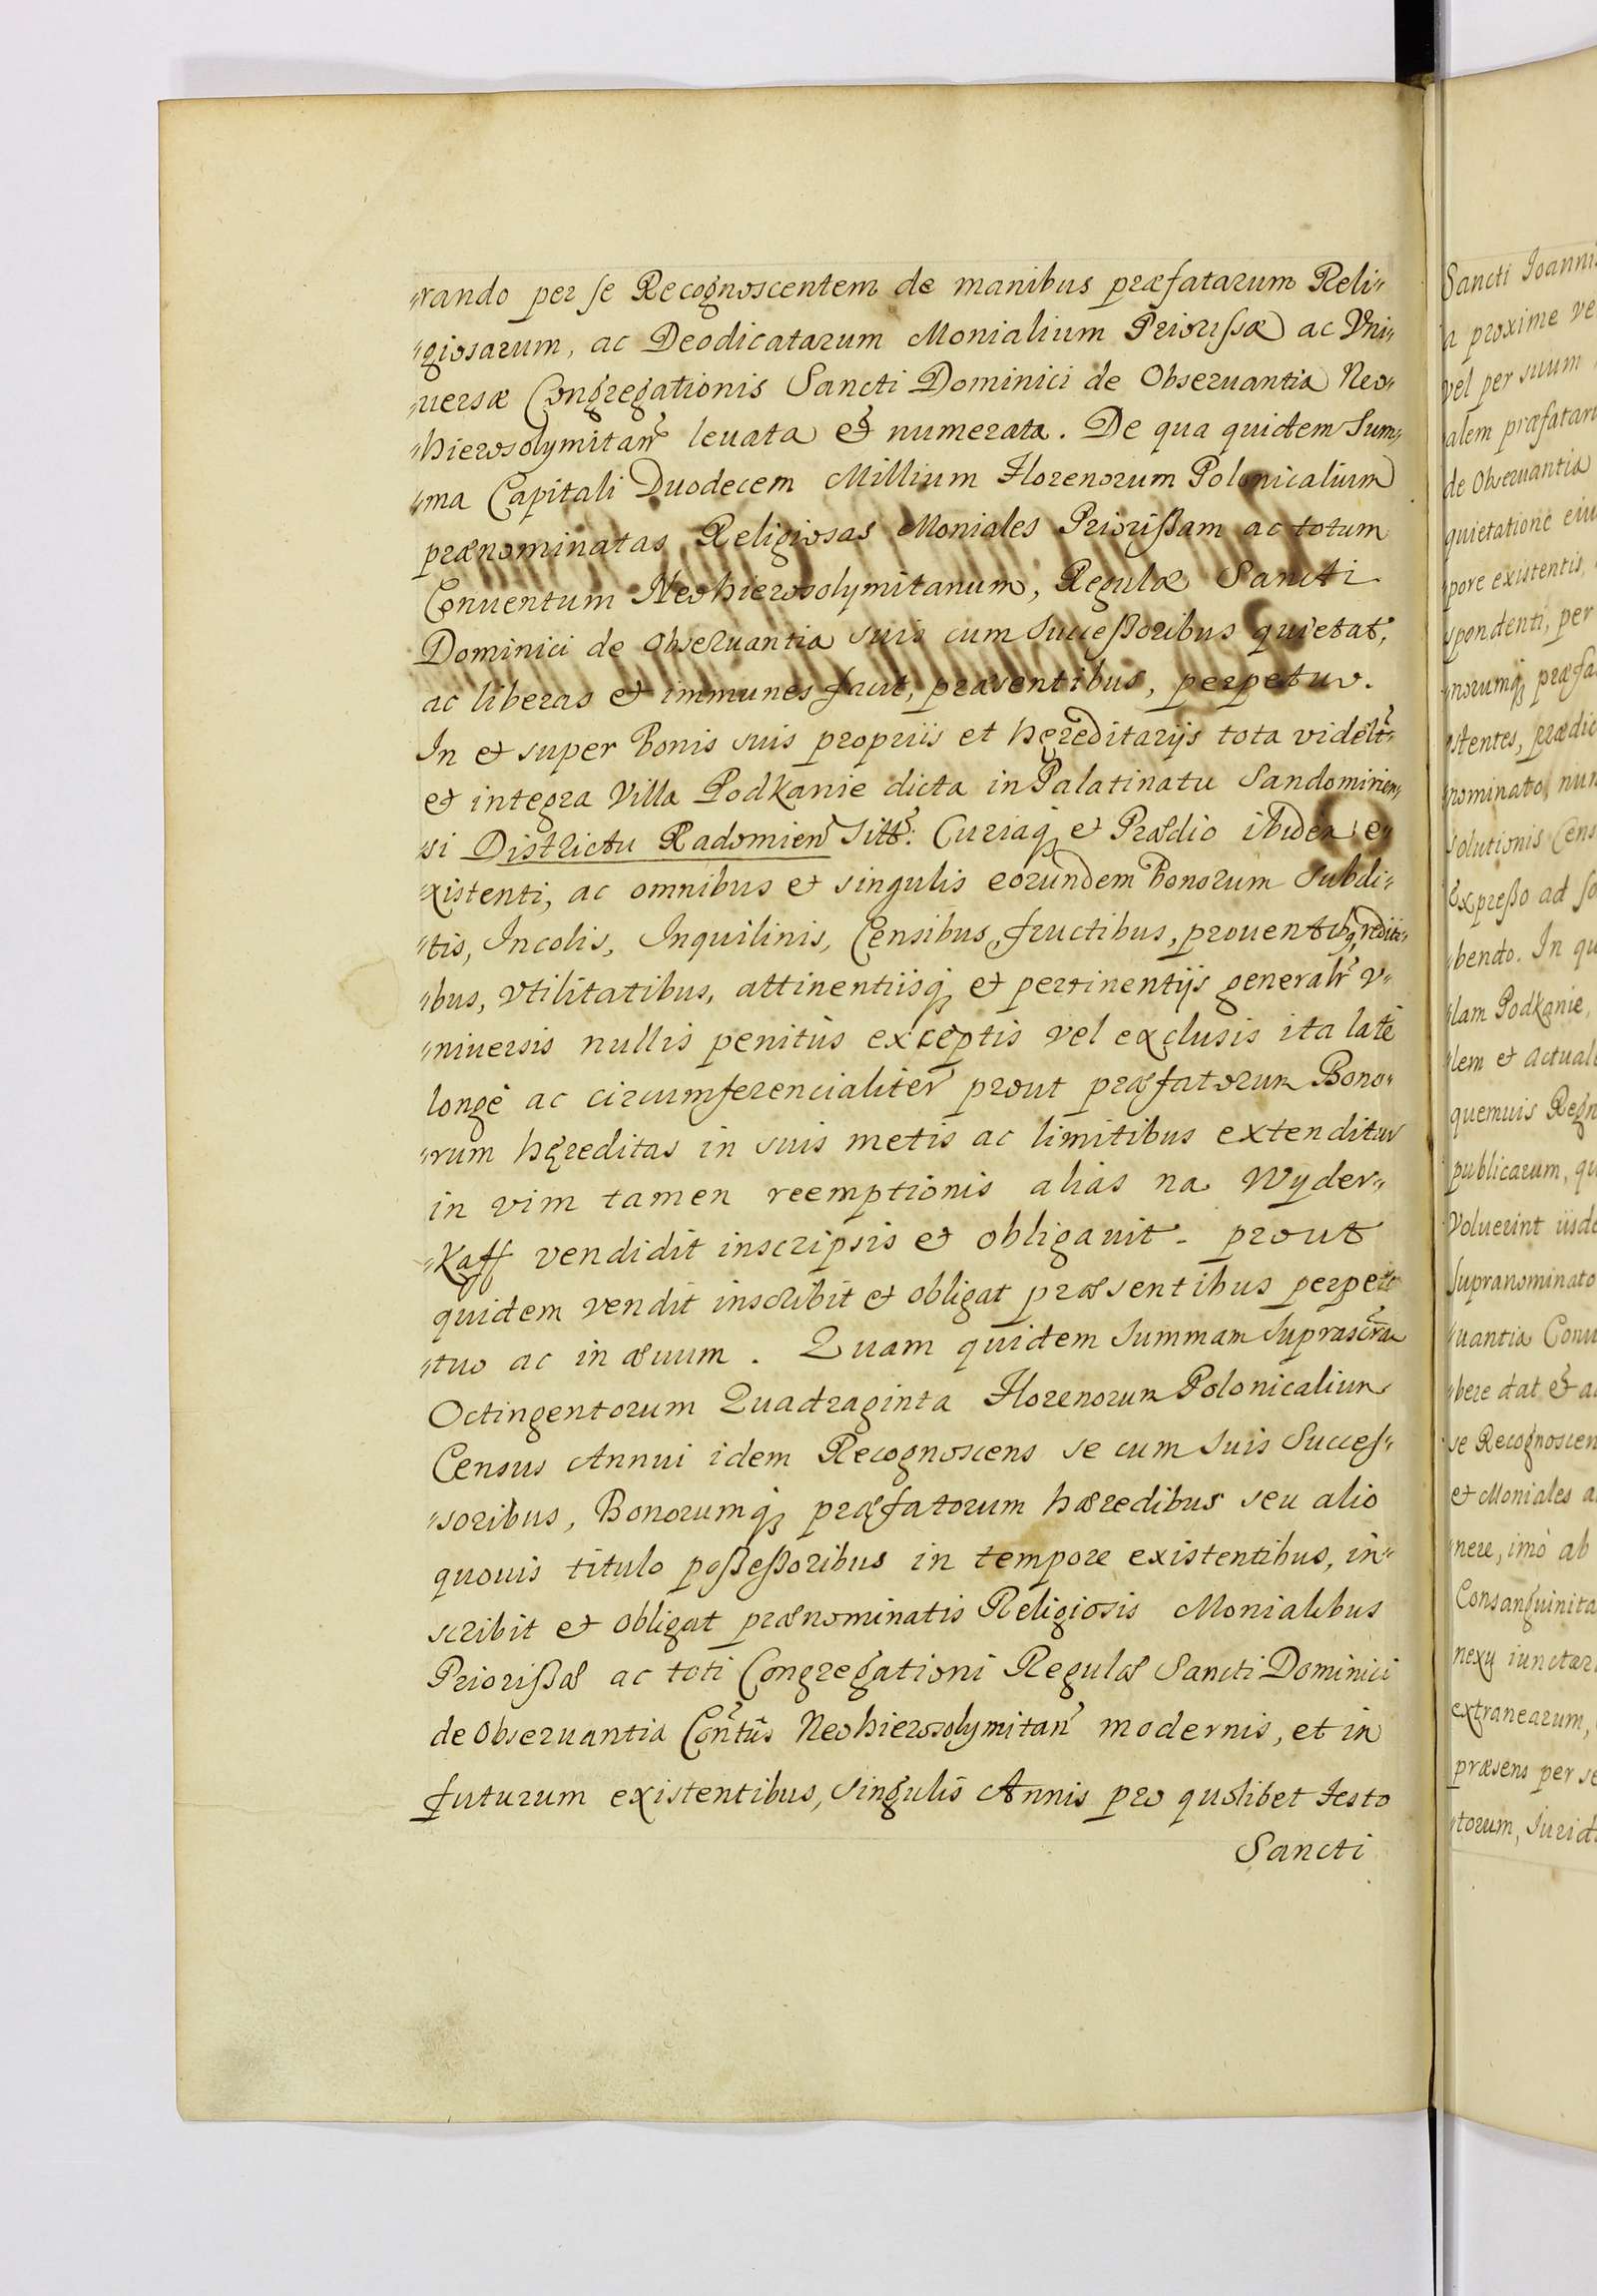 "rando per se Recognoscentem de manibus præfatarum Reli"
"giosarum, ac Deodicatarum Monialium Priorissæ ac Vni"
"uersæ Congregationis Sancti Dominici de Obseruantia Neo"
"hierosolymitan̄ leuata et numerata. De qua quidem Sum"
"ma Capitali Duodecem Millium Florenorum Polonicalium
prænominatas Religiosas Moniales Priorißam ac totum
Conuentum Neohierosolymitanum, Regulæ Sancti
Dominici de Obseruantia suis cum Succeßoribus quietat,
ac liberas et immunes facit, præsentibus, perpetuo.
In et super bonis suis propriis et hęreditarijs tota videlt̄
et integra Villa Podkanie dicta in Palatinatu Sandomirien"
"si Districtu Radomien̄ Sitt̄: Curiaq3 et Prædio ibidem e"
"xistenti, ac omnibus et singulis eorundem Bonorum Subdi"
"tis, Incolis, Inquilinis, Censibus, fructibus, prouentibq, rediti"
"bus, vtilitatibus, attinentiisq3 et pertinentijs generalr̄ v"
"niuersis nullis penitùs exceptis vel exclusis ita latè
longè ac circumferencialiter prout præfatorum Bono"
"rum hęreditas in suis metis ac limitibus extenditur
in vim tamen reemptionis alias na Wyder"
"Kaff vendidit inscripsis et obligauit - prout
quidem vendit inscribit et obligat præsentibus perpe
"tuo ac in æuum. Quam quidem Summam Suprascr̄ta
Octingentorum Quadraginta Florenorum Polonicalium
Census Annui idem Recognoscens se cum suis Succes"
"soribus, Bonorumq3 præfatorum hæredibus seu alio
quouis titulo poßeßoribus in tempore existentibus, in"
scribit et obligat prænominatis Religiosis Monialibus
Priorißæ ac toti Congregationi Regulæ Sancti Dominici
de Obseruantia Con̄tūs Neohierosolymitan̄ modernis, et in
futurum existentibus, singulis Annis pro quolibet Festo
Sancti
Sancti Joannis
a proxime ve
vel per suum
alem præfatar
de Obseruantia
quietatione eiu
pore existentis,
spondenti, per
norumq3 præfa
stentes, prædic
nominato, nun
solutionis Cens
Expreßo ad so
bendo. In qu
lam Podkanie,
lem et actual
quemuis Regn
publicarum, qu
Voluerint iisd
Supranominato
uantia Conu
bere dat et a
se Recognoscen
et Moniales a
nere, imò ab
Consanguinita
nexu iunctar
extranearum,
præsens per se
torum, Jurid